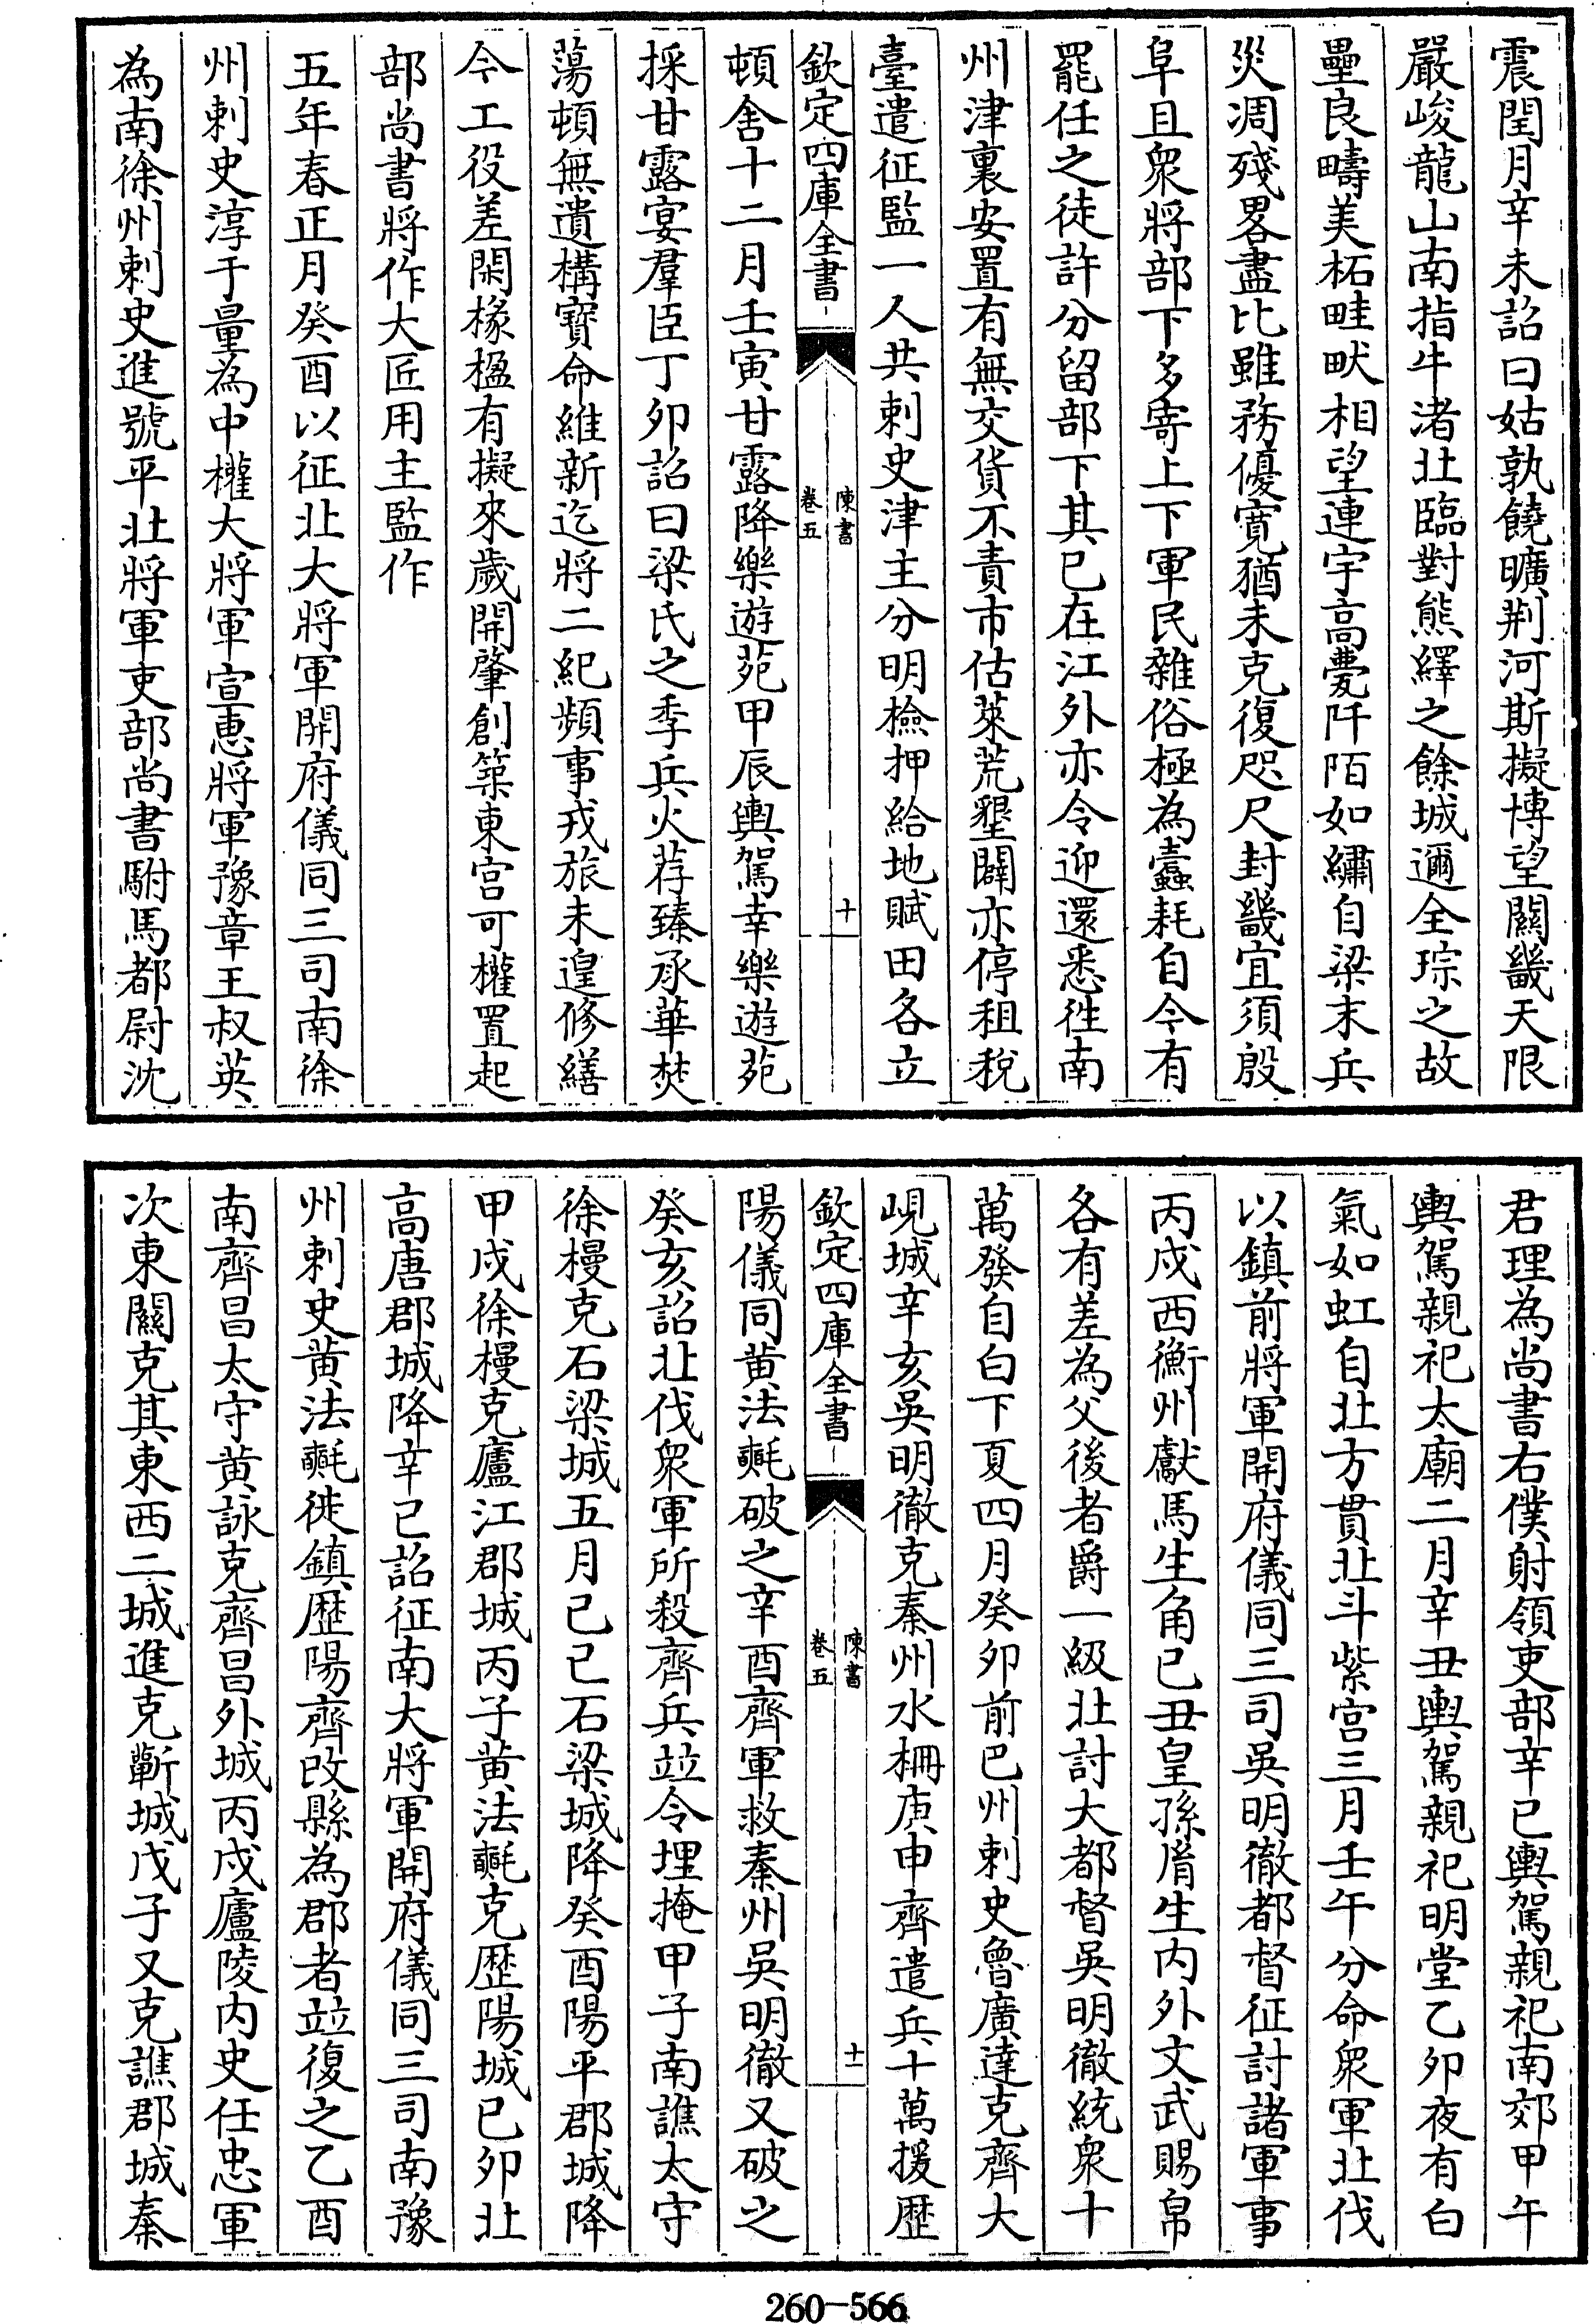 震閏月辛未詔曰姑孰饒曠荆河斯擬博望關畿天限
嚴峻龍山南指牛渚北臨對熊繹之餘城邇全琮之故
壘良疇美柘畦畎相望連宇高甍阡陌如繡自梁末兵
災凋殘畧盡比雖務優寛猶未克復咫尺封畿宜須殷
阜且衆將部下多寄上下軍民雜俗極為蠧耗自今有
罷任之徒許分留部下其已在江外亦令迎還悉徃南
州津裏安置有無交貨不責市估萊荒墾闢亦停租稅
臺遣征監一人共刺史津主分明檢押給地賦田各立
欽定四庫全書
陳書
卷五
十
頓舍十二月壬寅甘露降樂遊苑甲辰輿駕幸樂遊苑
採甘露宴羣臣丁卯詔曰梁氏之季兵火荐臻承華焚
蕩頓無遺構寳命維新迄將二紀頻事戎旅未遑修繕
今工役差閑椽楹有擬來歲開肇創築東宫可權置起
部尚書將作大匠用主監作
五年春正月癸酉以征北大將軍開府儀同三司南徐
州刺史淳于量為中權大將軍宣惠將軍豫章王叔英
為南徐州刺史進號平北將軍吏部尚書駙馬都尉沈
君理為尚書右僕射領吏部辛巳輿駕親祀南郊甲午
輿駕親祀太廟二月辛丑輿駕親祀明堂乙卯夜有白
氣如虹自北方貫北斗紫宫三月壬午分命衆軍北伐
以鎮前將軍開府儀同三司吳明徹都督征討諸軍事
丙戌西衡州獻馬生角己丑皇孫胤生内外文武賜帛
各有差為父後者爵一級北討大都督吳明徹統衆十
萬發自白下夏四月癸卯前巴州刺史魯廣達克齊大
峴城辛亥吳明徹克秦州水柵庚申齊遣兵十萬援歴
欽定四庫全書
陳書
卷五
十一
陽儀同黄法𣰰破之辛酉齊軍救秦州吳明徹又破之
癸亥詔北伐衆軍所殺齊兵竝令埋掩甲子南譙太守
徐槾克石梁城五月己巳石梁城降癸酉陽平郡城降
甲戌徐槾克廬江郡城丙子黄法𣰰克歴陽城己卯北
高唐郡城降辛巳詔征南大將軍開府儀同三司南豫
州刺史黄法𣰰徙鎮歴陽齊改縣為郡者竝復之乙酉
南齊昌太守黄詠克齊昌外城丙戌廬陵内史任忠軍
次東關克其東西二城進克蘄城戊子又克譙郡城秦
260-566